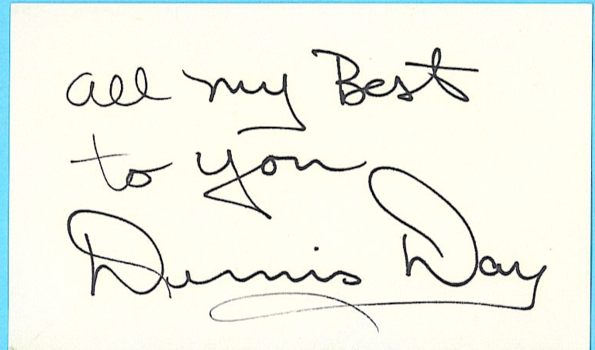 all my Best
to you
Dennis Day